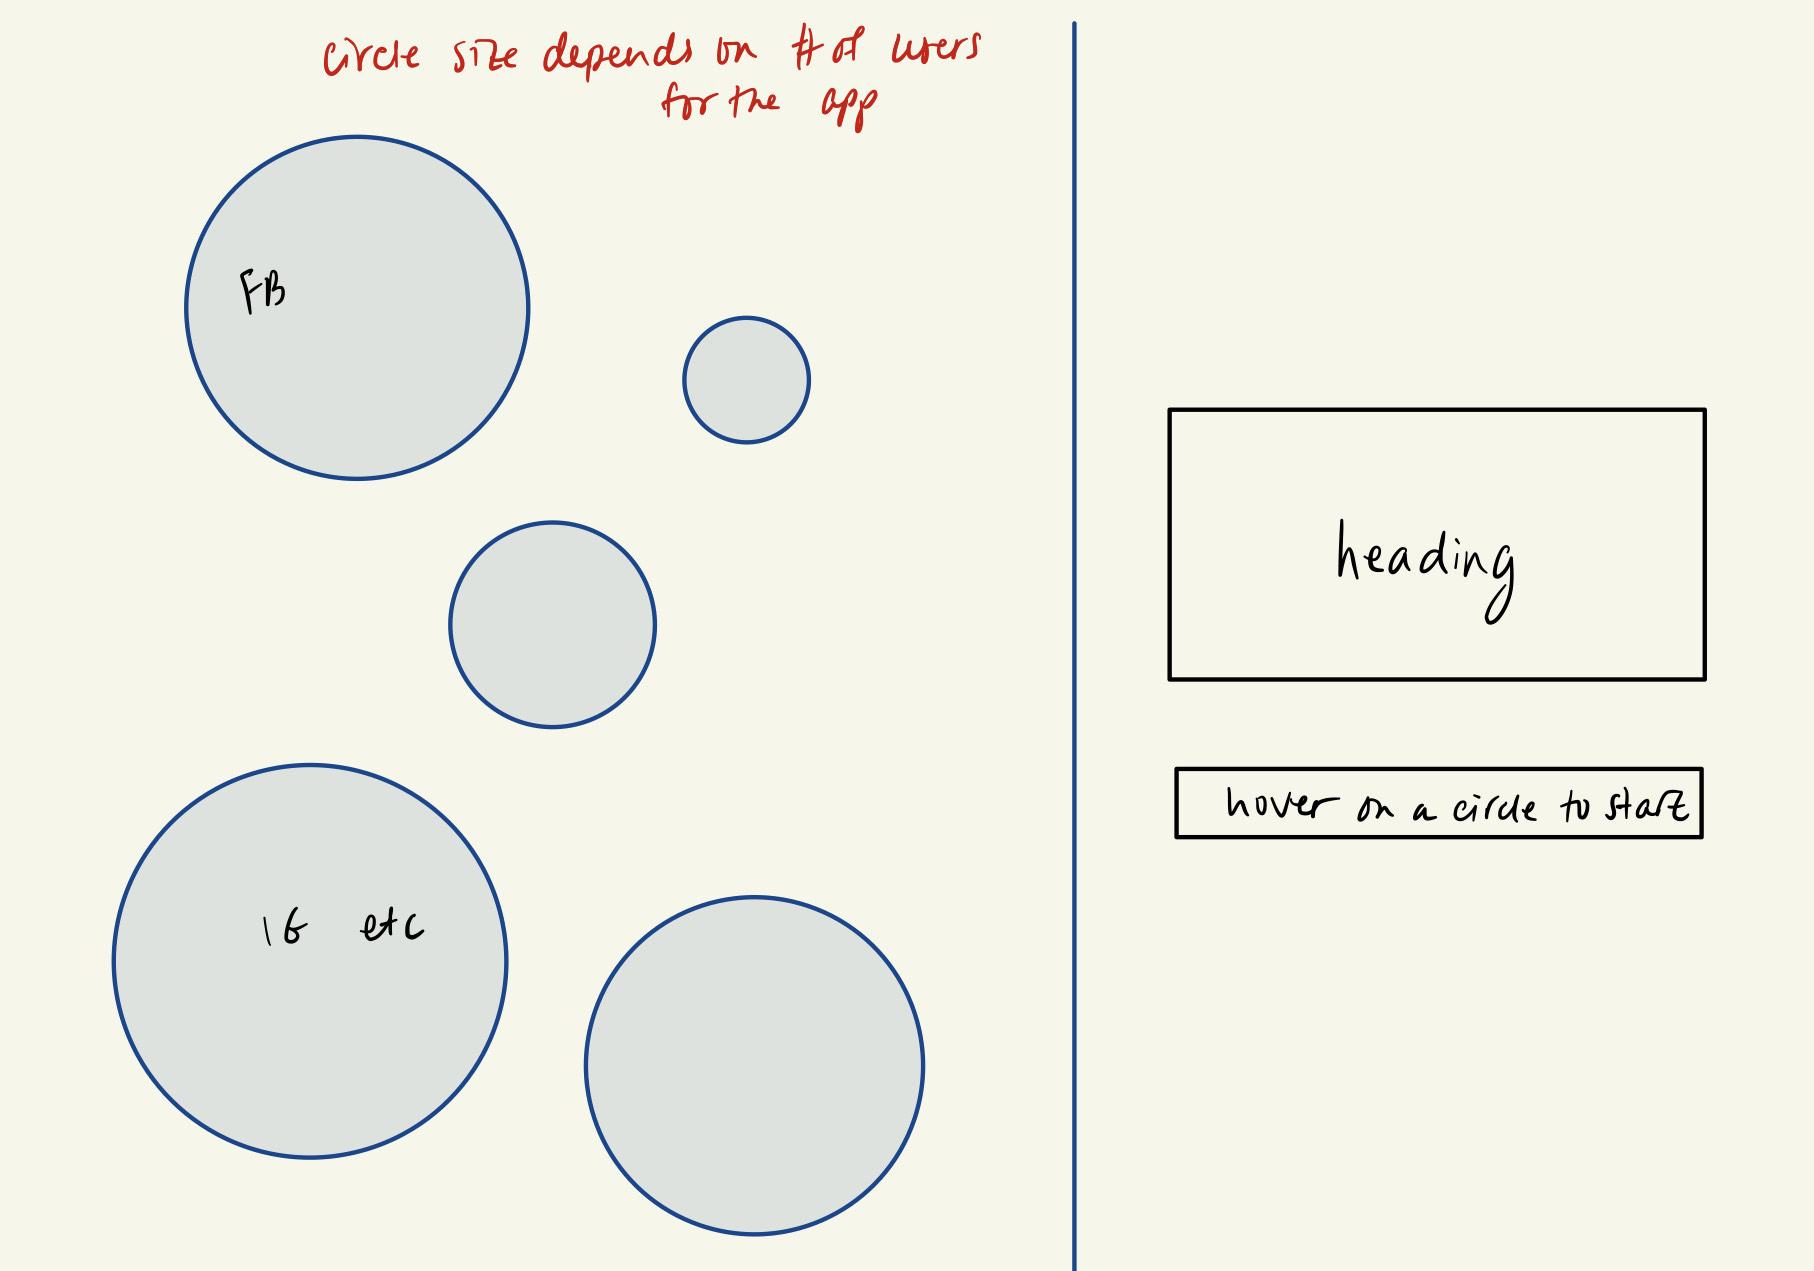 circle size depends on # of users
for the app
FB
heading
hover on a circle to start
IG etc